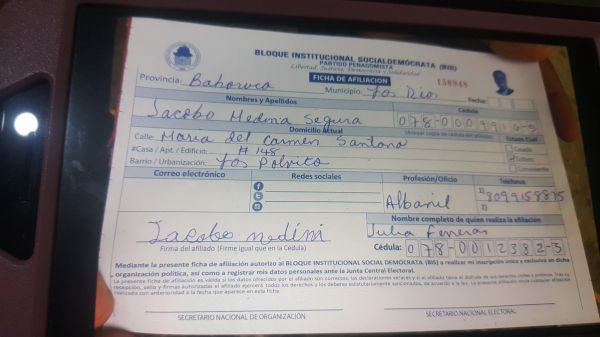 BLOQUE INSTITUCIONAL SOCIALDEMÓCRATA (BIS)
PARTIDO PEÑAGOMISTA
Libertad, Justicia, Democracia y Solidaridad
FICHA DE AFILIACION
158948
Provincia: Bahoruco Municipio: Los Rios Fecha:
Nombres y Apellidos Cédula
Jacobo Medina Segura 078-00
Domicilio Actual (Anexar copia de cédula del afiliado) Estado Civil
Calle: Maria del Carmen Santana Casado
#Casa / Apt. / Edificio: # 148 Soltero
Barrio / Urbanización: Los Polvito Conviviente
Correo electrónico Redes sociales Profesión/Oficio Teléfonos
Albanil
1) 8099158875
2)
Jacobo medini
Firma del afiliado (Firme igual que en la Cédula)
Nombre completo de quien realiza la afiliación
Julia Ferreras
Cédula: 078-0012382-5
Mediante la presente ficha de afiliación autorizo al BLOQUE INSTITUCIONAL SOCIAL DEMÓCRATA (BIS) a realizar mi inscripción única y exclusiva en dicha
organización política, así como a registrar mis datos personales ante la Junta Central Electoral.
La presente ficha de afiliación es válida si los datos ofrecidos por el afiliado son correctos, las declaraciones veraces y si el afiliado tiene el disfrute de sus derechos civiles y políticos. Tras su
recepción, sello y firmas autorizadas el afiliado ejercerá todos los derechos y los deberes estatutariamente sancionados, de acuerdo a la ley. La presente afiliación anula cualquier afiliación
realizada con anterioridad a la fecha que aparece en esta ficha.
SECRETARIO NACIONAL DE ORGANIZACIÓN SECRETARIO NACIONAL ELECTORAL